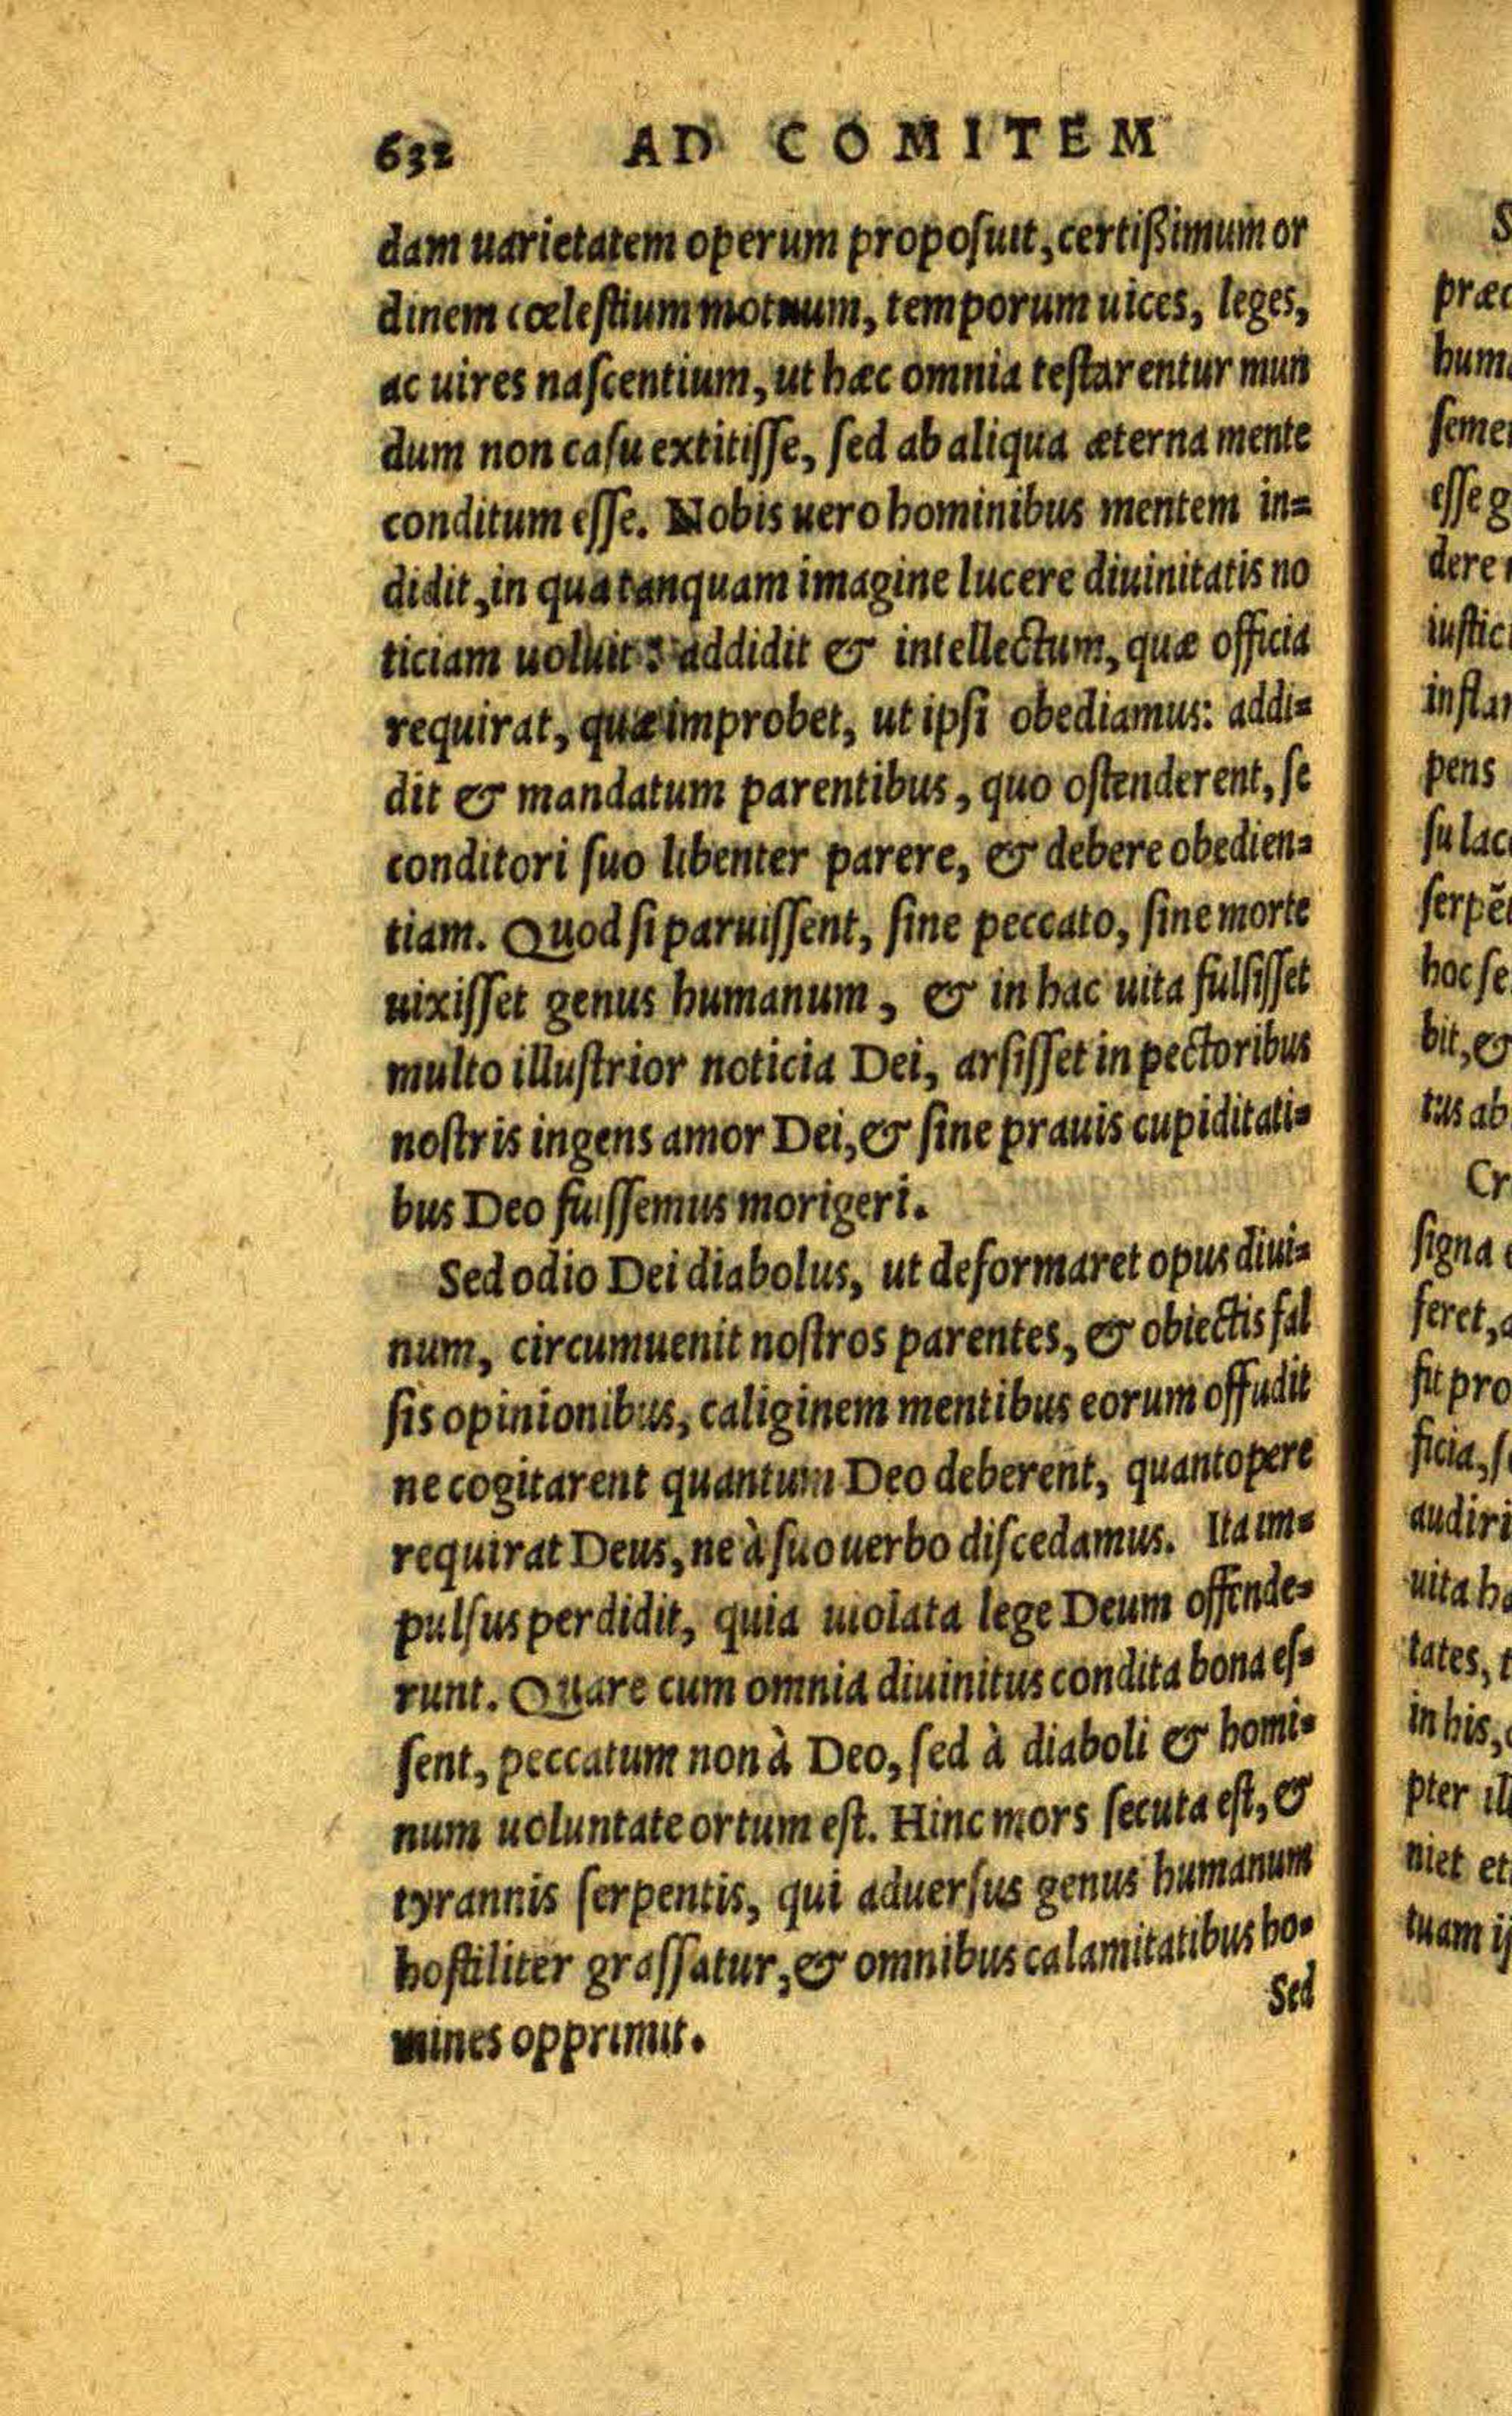 632 AD COMITEM
dam uarietatem operum proposuit, certißimum or
dinem cœlestium motuum, temporum uices, leges,
ac uires nascentium, ut hæc omnia testarentur mun
dum non casu extitisse, sed ab aliqua æterna mente
conditum esse. Nobis uero hominibus mentem in=
didit, in qua tanquam imagine lucere diuinitatis no
ticiam uoluit: addidit & intellectum, quæ officia
requirat, quæ improbet, ut ipsi obediamus: addi=
dit & mandatum parentibus, quo ostenderent, se
conditori suo libenter parere, & debere obedien=
tiam. Quod si paruissent, sine peccato, sine morte
uixisset genus humanum, & in hac uita fulsisset
multo illustrior noticia Dei, arsisset in pectoribus
nostris ingens amor Dei, & sine prauis cupiditati=
bus Deo fuissemus morigeri.
Sed odio Dei diabolus, ut deformaret opus diui=
num, circumuenit nostros parentes, & obiectis fal
sis opinionibus, caliginem mentibus eorum offudit
ne cogitarent quantum Deo deberent, quantopere
requirat Deus, ne à suo uerbo discedamus. Ita im=
pulsus perdidit, quia uiolata lege Deum offende=
runt. Quare cum omnia diuinitus condita bona es=
sent, peccatum non à Deo, sed à diaboli & homi=
num uoluntate ortum est. Hinc mors secuta est, &
tyrannis serpentis, qui aduersus genus humanum
hostiliter grassatur, & omnibus calamitatibus ho=
mines opprimit.
Sed
S
præc
hum
semen
esse g
dere
iustic
instar
pens
su lac
serpē
hoc se
bit, &
tus ab
Cr
signa
feret,
sit pro
ficia, s
audiri
uita h
tates, t
in his,
pter ill
niet et
tuam ij